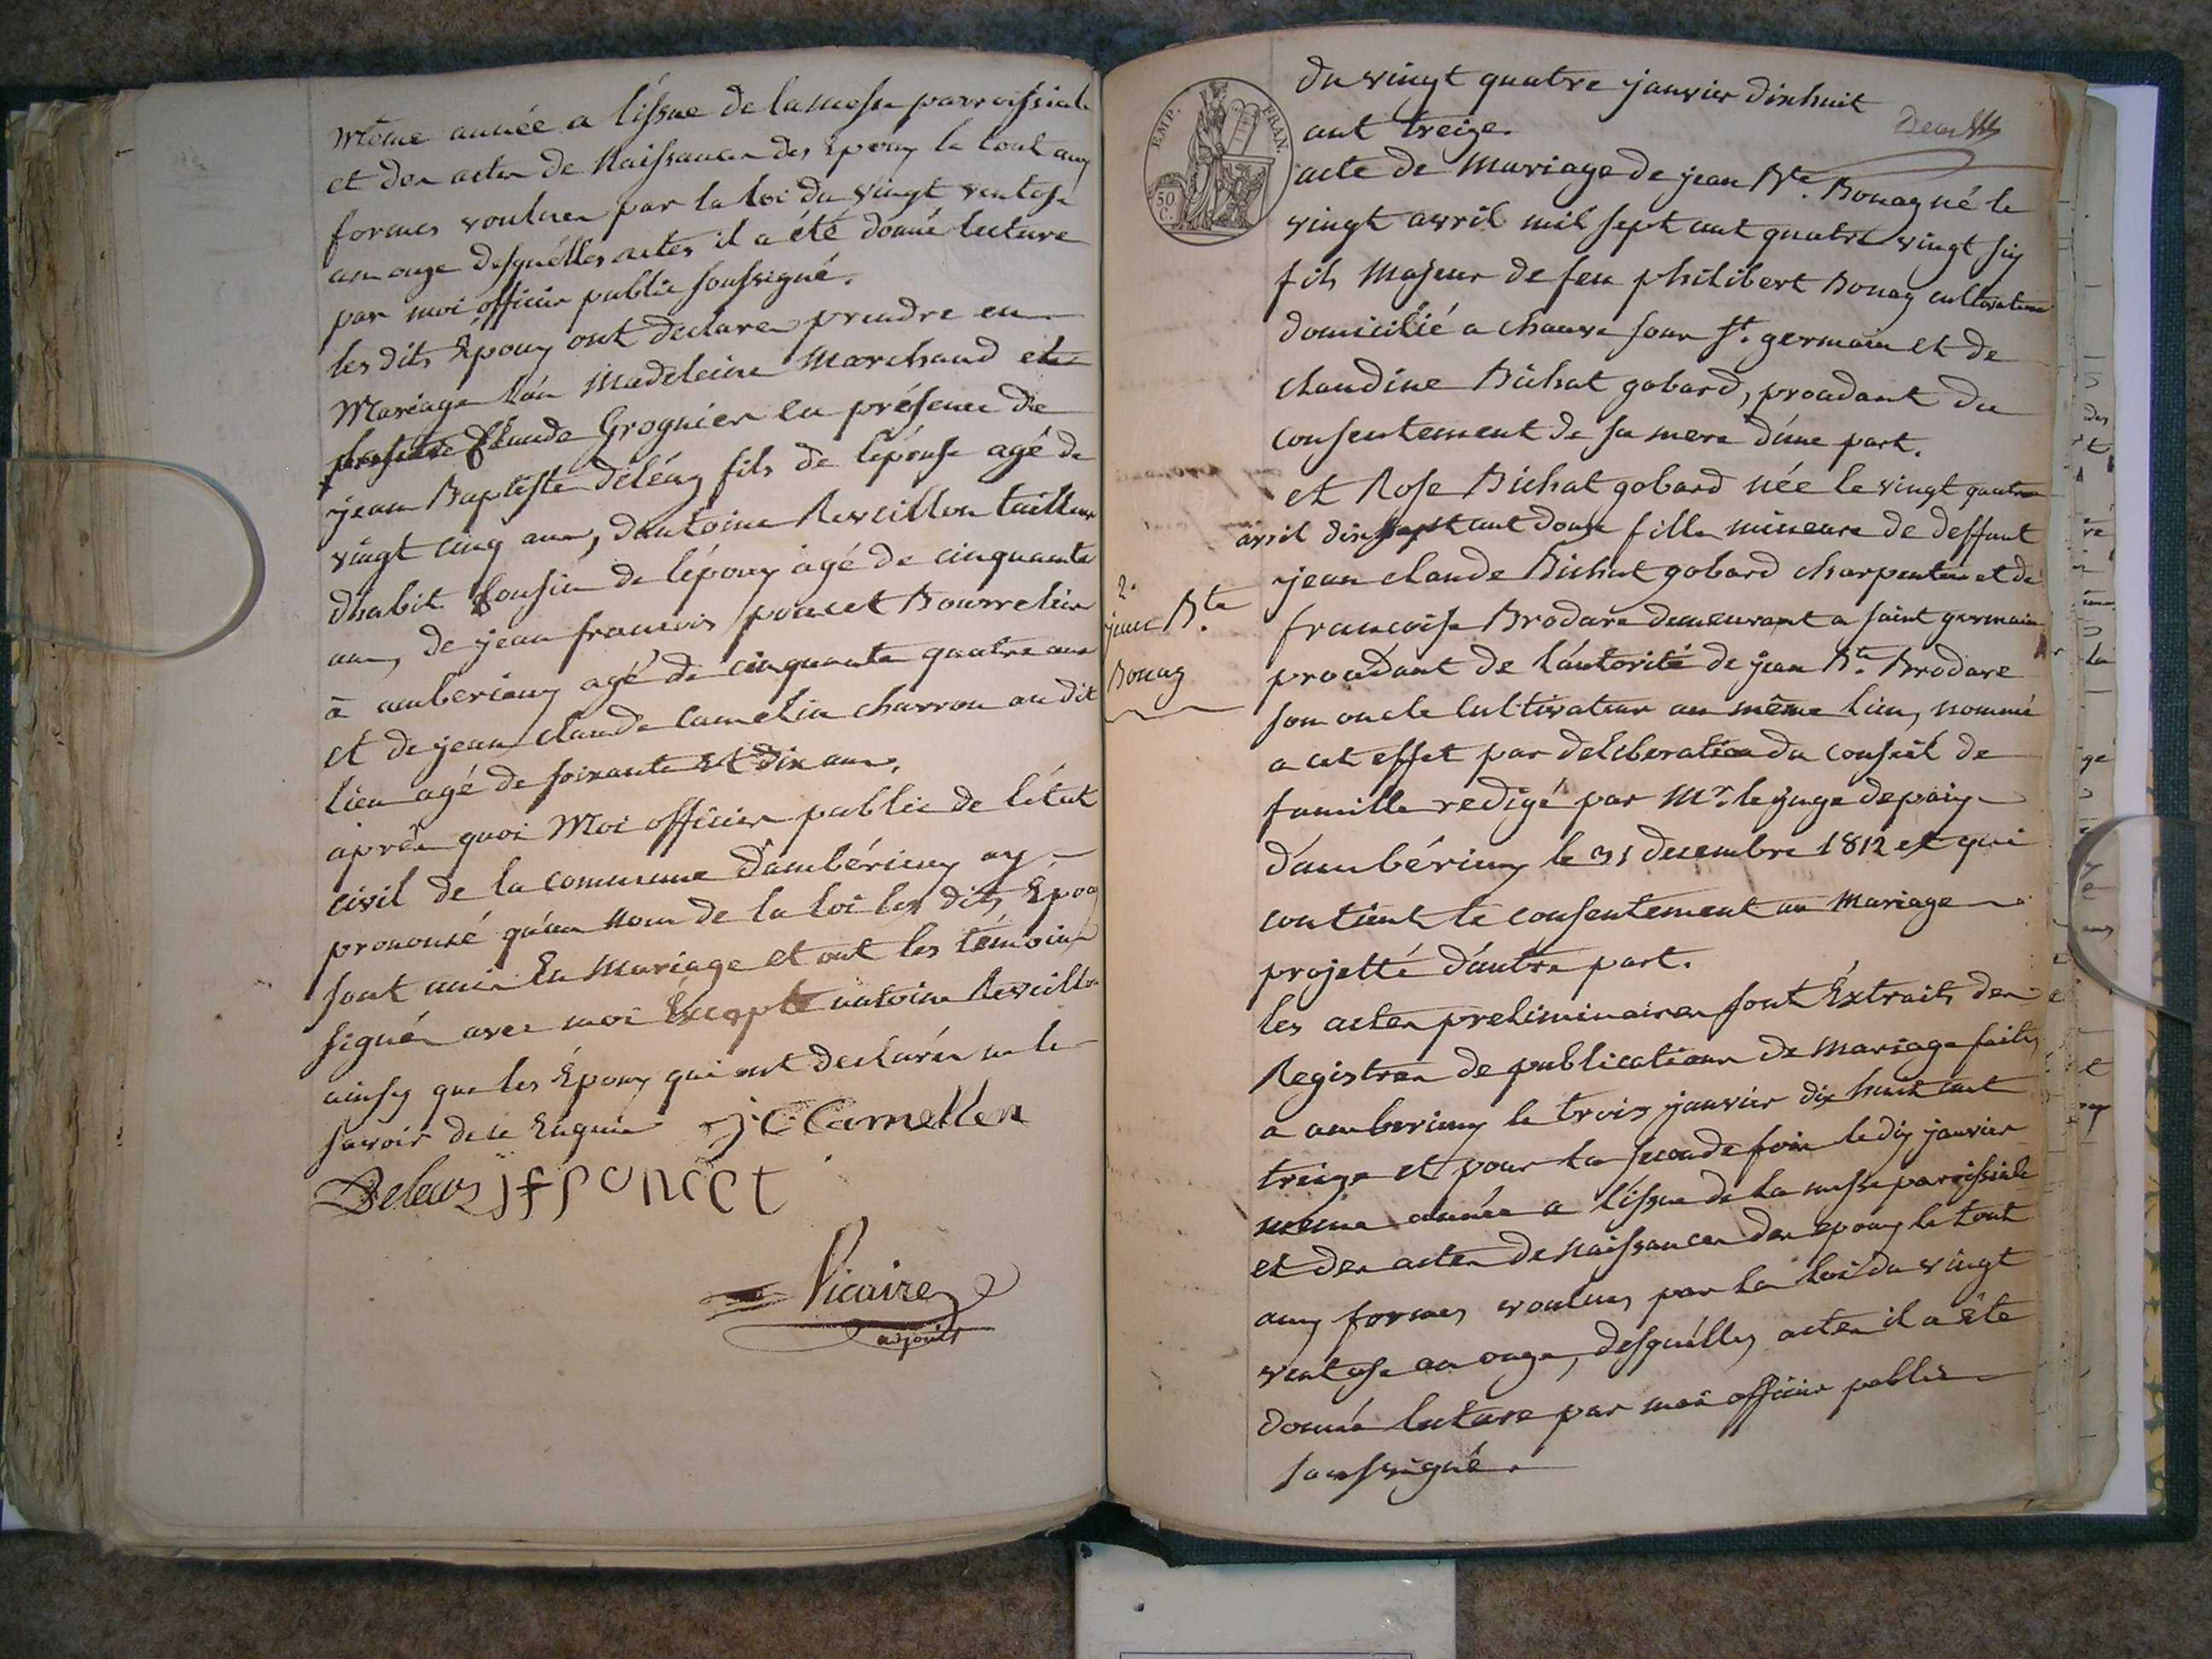 même année a l'issue de la messe parroissiale
et des actes de Naissances des Époux le tout aux
formes voulues par la loi du vingt ventose
an onze desquélles actes il a été donné lecture
par moi officier public soussigné.
les dits Époux ont declarer prendre en
Mariage l'un Madeleine Marchand et
Claude Grognier en présence de
jean Baptiste Déléaz fils de l'épouse agé de
vingt cinq ans, d'antoine Reveillon tailleur
d'habit Cousin de l'époux agé de cinquante
ans, de jean francois poncet Bourrelier
à amberieux agé de cinquante quatre ans
et de jean claude Camelin charron au dit
lieu agé de soixante et dix ans,
après quoi Moi officier public de l'état
civil de la commune d'ambérieux ay
prononcé qu'au nom de la loi les dits Époux
sont unis En Mariage et ont les témoins
signés avec moi Excepté antoine Reveillon
ainsy que les Époux qui ont declarés ne le
savoir de ce Enquis j C Camellen
Deleas jf poncet
Vicaire
adjoint
EMP. FRAN.
50 C.
du vingt quatre janvier dixhuit
cent treize.
acte de Mariage de jean Bte. Bouaz né le
vingt avril mil sept cent quatre vingt six
fils Majeur de feu philibert Bouaz cultivateur
domicilié a chauve sous St. germain et de
claudine Bichat gobard, procedant du
consentement de sa mere d'une part.
et Rose Bichat gobard née le vingt quatre
avril dixsept cent fille mineure de deffunt
jean claude Bichat gobard charpentier et de
francoise Brodare demeurant a saint germain
procedant de l'autorité de jean Bte. Brodare
son oncle cultivateur au même lieu, nommé
a cet effet par deliberation du conseil de
famille redigé par Mr. le juge de paix
d'ambérieux le 31 decembre 1812 et qui
contient le consentement au Mariage
projetté d'autre part.
2.
jean Bte.
Bouaz
les actes preliminaires sont Éxtraits des
Registres de publications de mariage faites
a amberieux le trois janvier dix huit cent
treize et pour la seconde fois le dix janvier
meme année a l'issue de la messe paroissiale
et des actes de Naissances des epoux le tout
aux formes voulues par la loi du vingt
ventose an onze, desquélles actes il a été
donné lecture par moi officier public
soussigné.